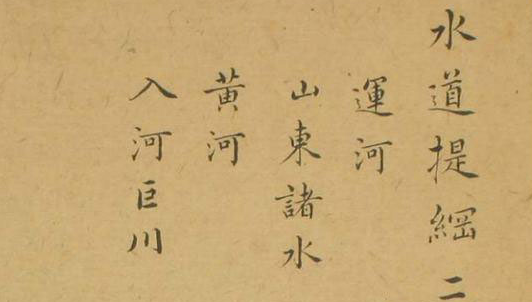 水道提綱二
運河
山東諸水
黃河
入河巨川